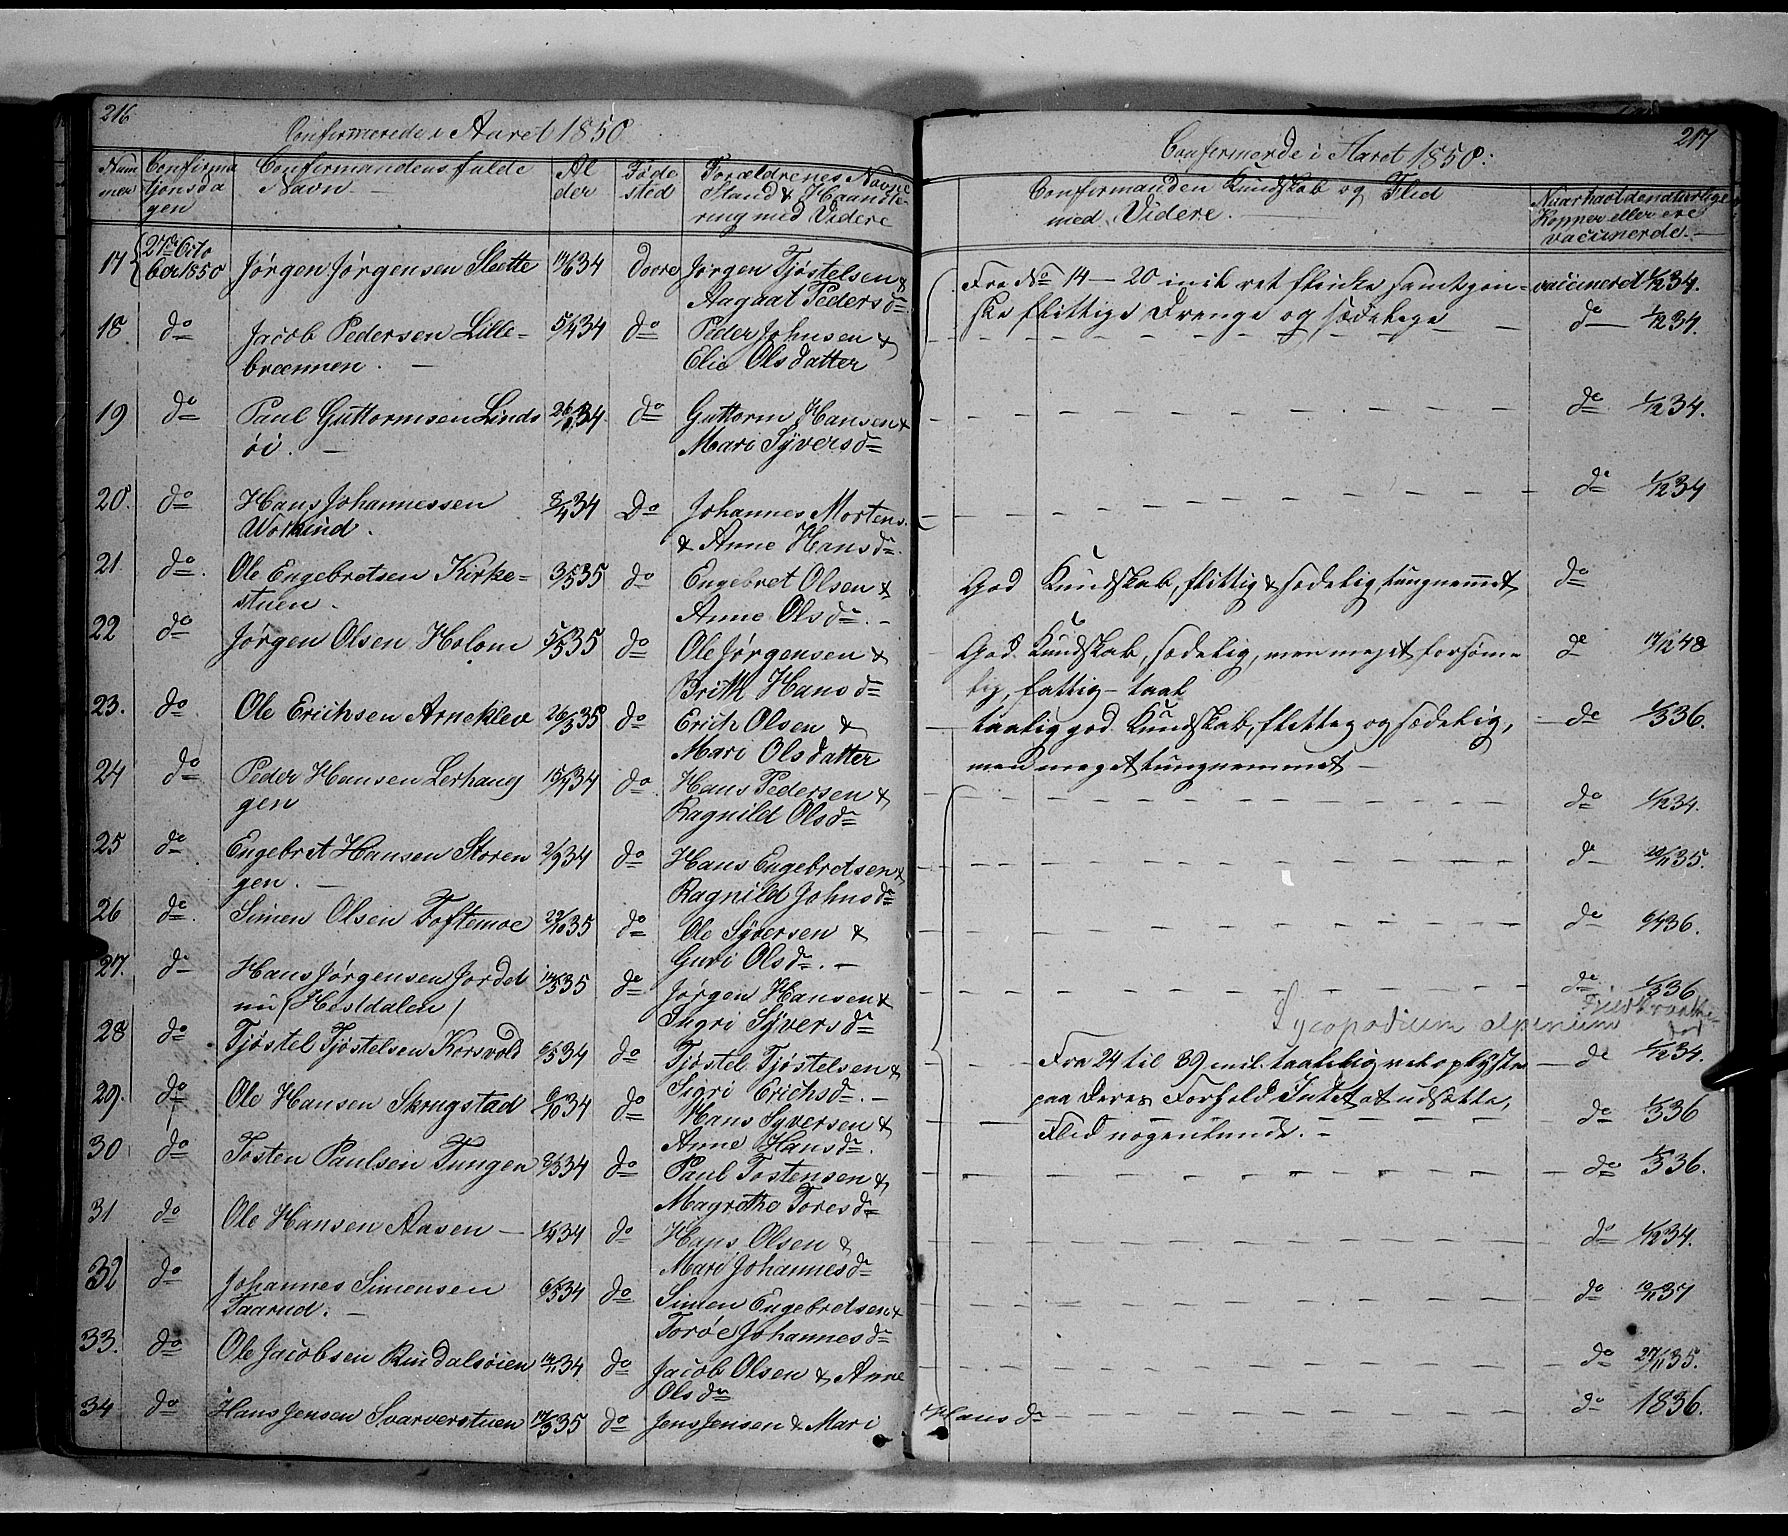 216
Confirmerede i Aaret 1850
Num mer
Confirma tjonsda gen
Confirmandens fulde Navn
Al der
Føde sted
Forældrenes Navne Stand & Haandte- ring med Videre
17 27de Octo ber 1850 Jørgen Jørgensen Slette 34 Dovre Jørgen Tjøstelsen &
Aagaat Pedersdr
18. do Jacob Pedersen Lille- 5/4 34 do Peder Johnsen &
brænnen. Elie Olsdatter
19 do Paul Guttormsen Linds 34 do Guttorm Hansen &
øi. Mari Syversdr
20. do Hans Johannessen 8/4 34 Do Johannes Mortens.
& Anne Hansdr.
21 do. Ole Engebretsen Kirke- 3/5 35 do Engebret Olsen &
stuen. Anne Olsdr.
22 do Jørgen Olsen Holom 5/5 35 do Ole Jørgensen &
Britt Hansdr
23. do Ole Erichsen Arneklev 26/3 35 do Erich Olsen &
Mari Olsdatter
24 do Peder Hansen Lerhaug 34 do Hans Pedersen &
gen Ragnild Olsdr
25 do Engebret Hansen Storen 2/9 34 do Hans Engebretsen &
gen. Ragnild Johnsdr
26 do. Simen Olsen Toftemoe 29/10 35 do Ole Syversen &
Guri Olsdr.
27. do Hans Jørgensen Jordet 35 do Jørgen Hansen &
nu (Hestdalen) Ingri Syversdr
28 do Tjøstel Tjøstelsen Korsvold 34 do Tjøstel Tjøstelsen &
Sigri Erichsdr.
29. do Ole Hansen Skrugstad 34 do Hans Syversen &
Anne Hansdr.
30 do Tosten Paulsen Tungen 34 do Paul Tostensen &
Magrethe Toresdr
31 do Ole Hansen Aasen 34 do Hans Olsen &
Mari Johannesdr
32 do Johannes Simensen 34 do Simen Engebretsen &
Taarud. Torøe Johannesdr
33. do Ole Jacobsen Rindalsøien 34 do Jacob Olsen & Anne
Olsdr
34 do Hans Jensen Svarverstuen 35 do Jens Jensen & Mari
Hansdr
217
Confirmerede i Aaret 1850.
Confirmanden Kundskab og Flid
med Videre.
Naar havt de naturlige
Kopper eller ere
vaccinerede.
Fra No 14 - 20 incl. ret flinke samt gan- vaccineret 1/12 34.
ske flittige Drenge og sædelige do 1/12 34.
do 1/12 34.
do 1/12 34
God Kundskab, flittig & sædelig, tungnemmet do
God Kundskab, sædelig, men meget forsømme do 48
lig, fattig-
taalig god Kundskab, flittig og sædelig, do 1/3 36.
men meget tungnemmet
do 1/12 34.
do 35.
do 36.
do 1/3 36
Lycopodium alpinum
Fra 24 til 39 incl. taalelig vel oplyste do 1/12 34.
paa Deres Forhold Intet at udsætte, do 1/3 36
Flid nogenlunde.
do 1/3 36.
do 1/12 34.
do 37
do 27/11 35.
do 1836.